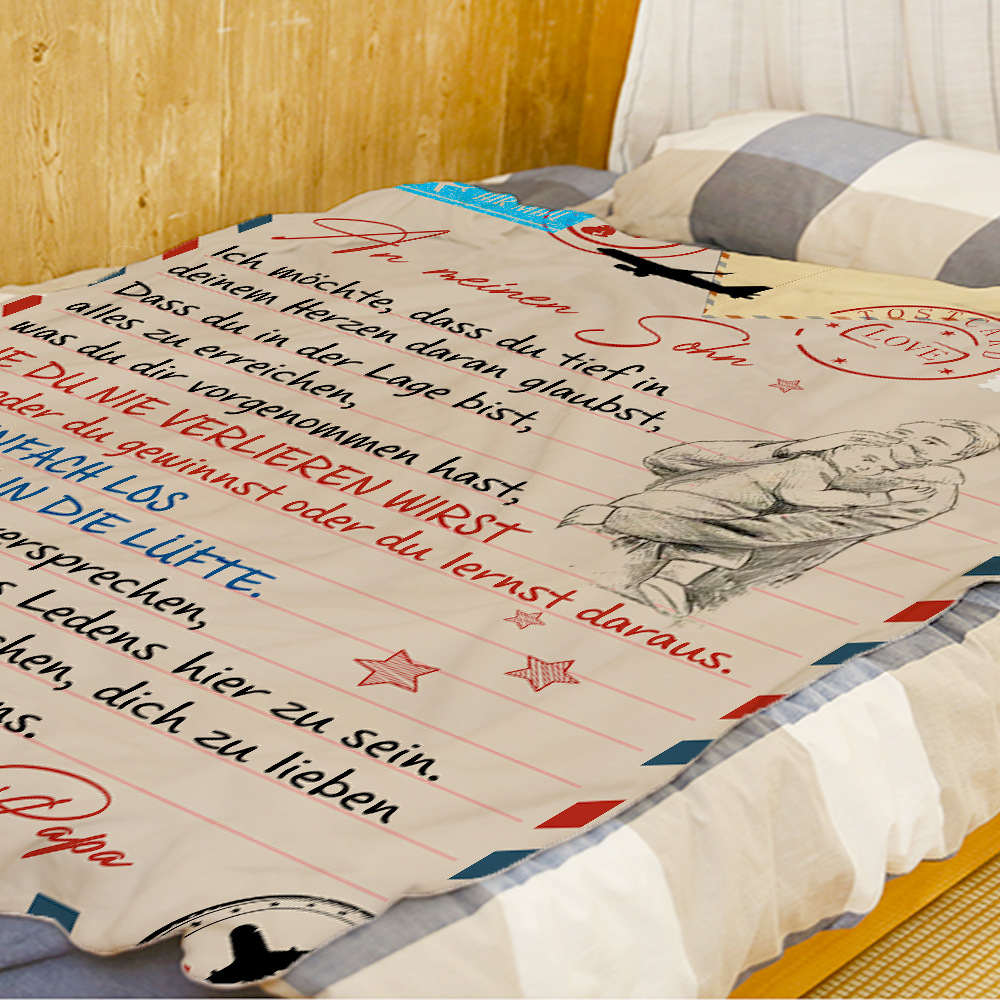 AIR MAIL
An meinen Sohn
POSTCARD
LOVE
Ich möchte, dass du tief in
deinem Herzen daran glaubst,
Dass du in der Lage bist,
alles zu erreichen,
was du dir vorgenommen hast,
DU NIE VERLIEREN WIRST
oder du gewinnst oder du lernst daraus.
LOS
IN DIE LÜFTE.
Ledens hier zu sein.
dich zu lieben
Papa